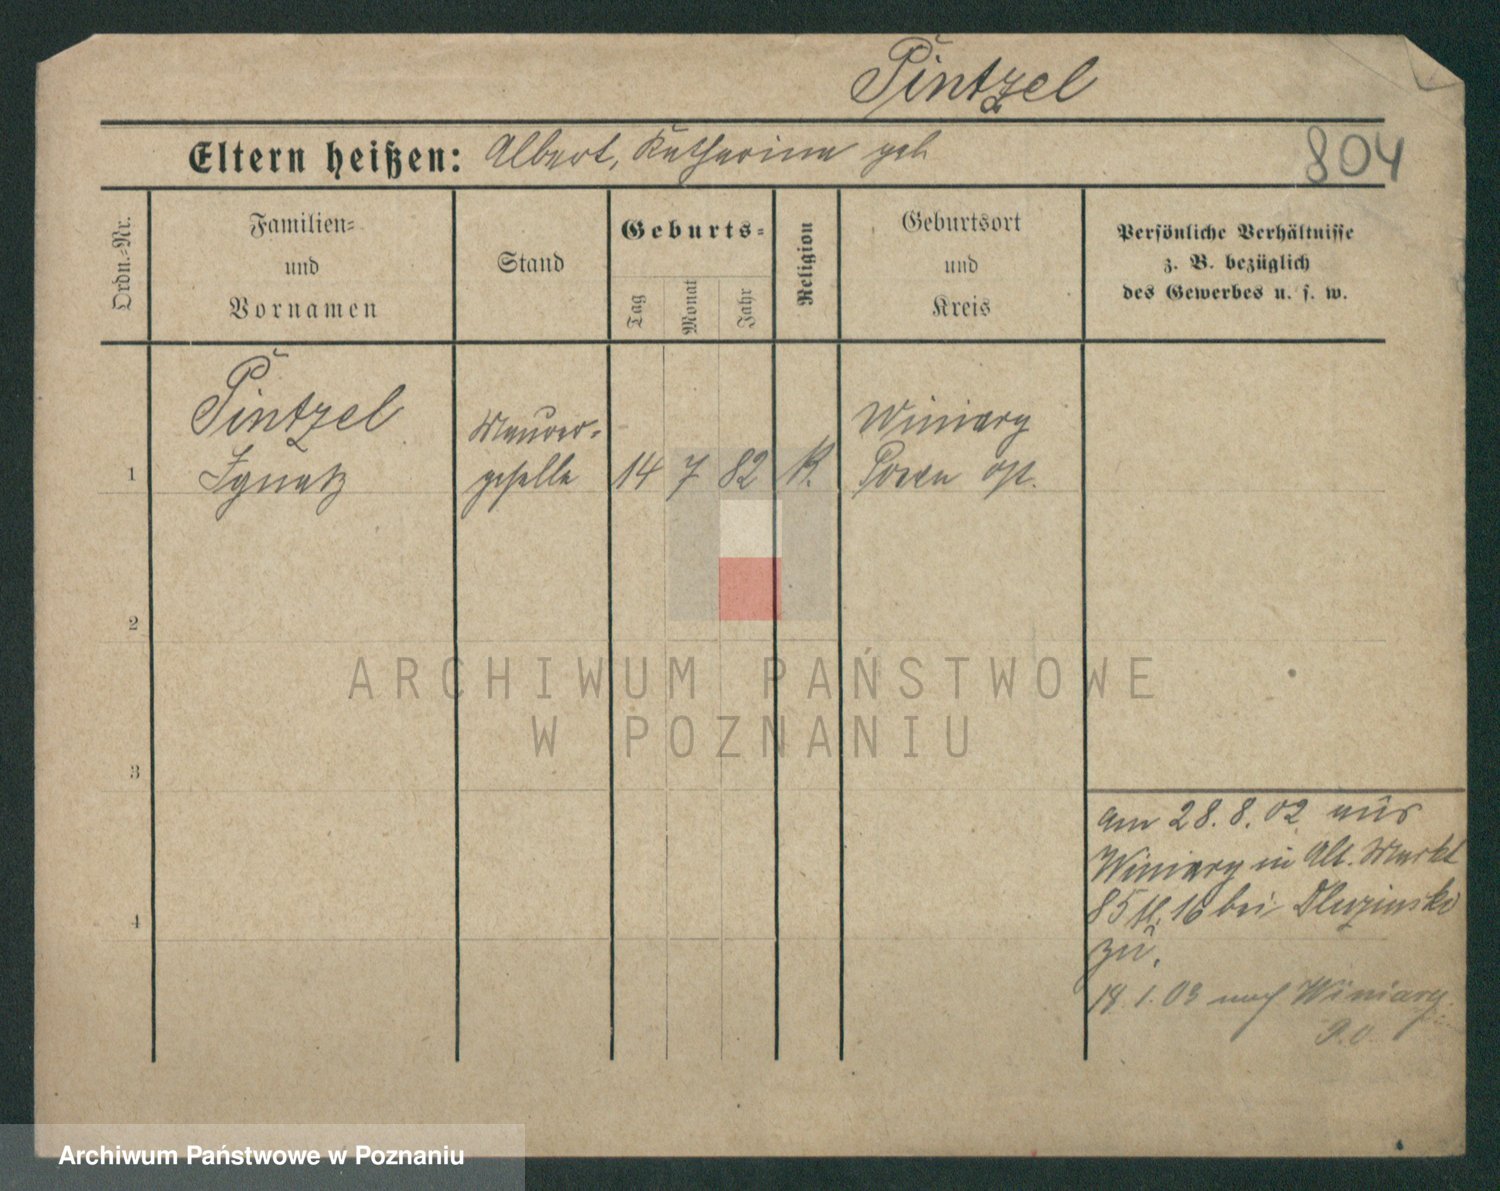 Pintzel
Eltern heißen: Albert, Katharina geb.
804
Ordn.-Nr.
Familien-
und
Vornamen
Stand
Geburts-
Tag
Monat
Jahr
Religion
Geburtsort
und
Kreis
Persönliche Verhältnisse
z. B. bezüglich
des Gewerbes u. s. w.
1
Pintzel
Ignatz
Maurer-
geselle
14 7 82 K.
Winiary
Posen Ost.
2
3
4
am 28.8.02 aus
Winiary in Alt. Markt
85 II. 16 bei
zu.
18.1.03 nach Winiary
P.O.
ARCHIWUM PAŃSTWOWE
W POZNANIU
Archiwum Państwowe w Poznaniu